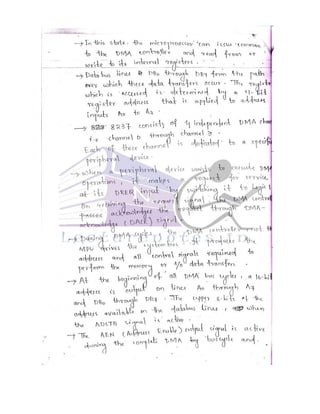 → In this state, the microprocessor can issue commands
to the DMA controller and read from or
write to its internal registers.
→ Data bus lines DB0 through DB7 form the path
over which these data transfers occur. The register
which is accessed is determined by a 4-bit
register address that is applied to address
inputs A0 to A3.
→ 8237 consists of 4 independent DMA chan
channel 0 through channel 3.
Each of these channel is dedicated to a specific
peripheral device.
→ When a peripheral device wants to DMA
operation, it makes request for service
at its DREQ input by switching it to logic 1
On the request signal the DMA control
acknowledges the request through DMA-
acknowledge (DACK) signal.
→ During DMA cycles, the DMA controller not the
MPU drives the system bus. It produces the
address and all control signals required to
perform the memory or I/O data transfers.
→ At the beginning of all DMA bus cycles, a 16-bit
address is output on lines A0 through A7
and DB0 through DB7. The upper 8-bits of the
address available on the databus lines, when
the ADSTB signal is active.
→ The AEN (Address Enable) output signal is active
during the complete DMA bus cycle and